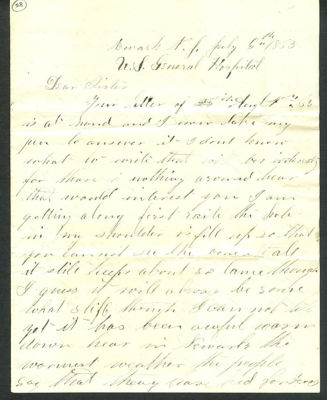 38
Newark N. J. July 5th 1863
U.S. General Hospital
Dear Sister
Your letter of
is at hand and I now take my
pen to answer it I dont know
what to write that will be
for there is nothing around hear
that would interest you I am
getting along first rate the hole
in my shoulder is fill up so that
you can not see the
it still keeps about so lame though
I guess it will always be some
what stiff though I can not tel
yet it has been awful warm
down hear in Newark the
warmest weather the people
say that they have had for